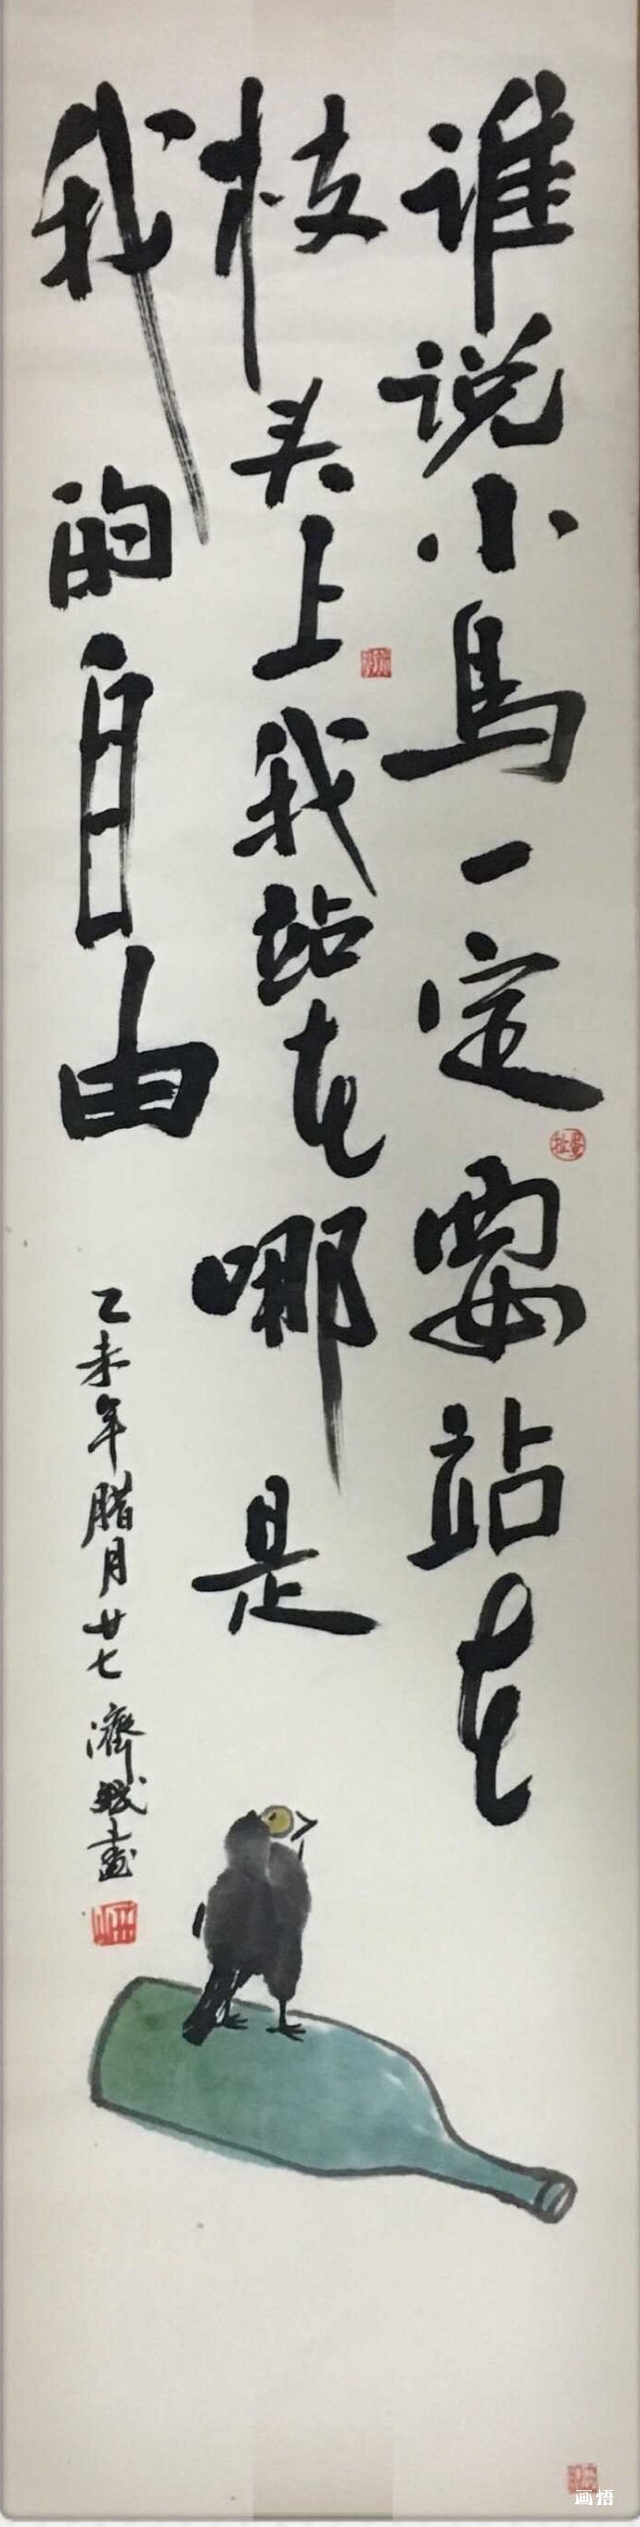 谁说小鸟一定要站在
枝头上我站在哪是
我的自由
乙未年腊月廿七濟城画
画悟